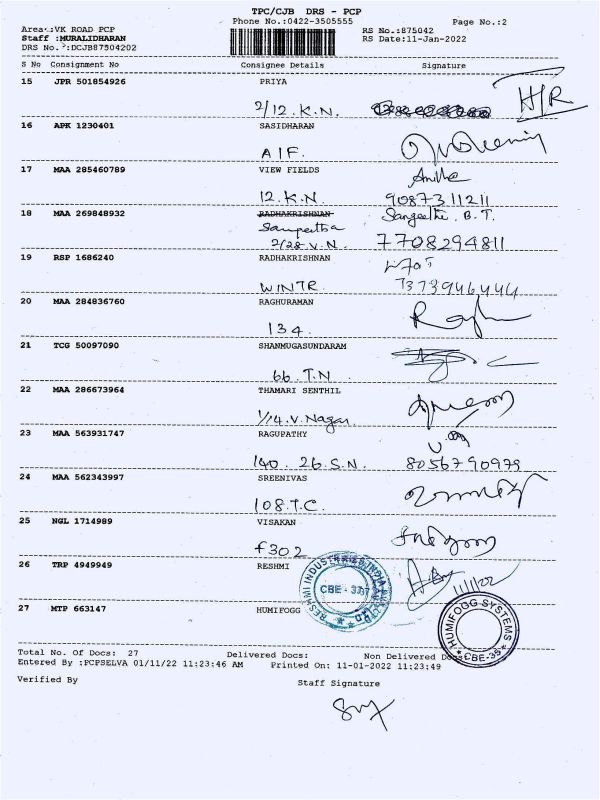 TPC/CJB DRS - PCP
Phone No.:0422-3505555 Page No.:2
Area:VK ROAD PCP RS No.:875042
Staff :MURALIDHARAN RS Date:11-Jan-2022
DRS No. :DCJB87504202
S No Consignment No Consignee Details Signature
15 JPR 501854926 PRIYA
2/12. K.N. H/R
16 APK 1230401 SASIDHARAN
A1F.
17 MAA 285460789 VIEW FIELDS Anitha
12. K.N 9087311211
18 MAA 269848932 RADHAKRISHNAN Sangeetha. B.T.
Sangeetha
2/28.V.N. 7708294811
19 RSP 1686240 RADHAKRISHNAN
WINTR. 7373946444
20 MAA 284836760 RAGHURAMAN
134. Raghu
21 TCG 50097090 SHANMUGASUNDARAM
66. T.N
22 MAA 286673964 THAMARI SENTHIL
1/14. V. Nagar.
23 MAA 563931747 RAGUPATHY
140. 26. S.N. 8056790979
24 MAA 562343997 SREENIVAS
108. T.C.
25 NGL 1714989 VISAKAN
F302
26 TRP 4949949 RESHMI
RESHMI INDUSTRIES INDIA
CBE - 37
11/1/22
27 MTP 663147 HUMIFOGG
HUMIFOGG SYSTEMS
CBE-35
Total No. Of Docs: 27 Delivered Docs: Non Delivered Docs:
Entered By :PCPSELVA 01/11/22 11:23:46 AM Printed On: 11-01-2022 11:23:49
Verified By Staff Signature